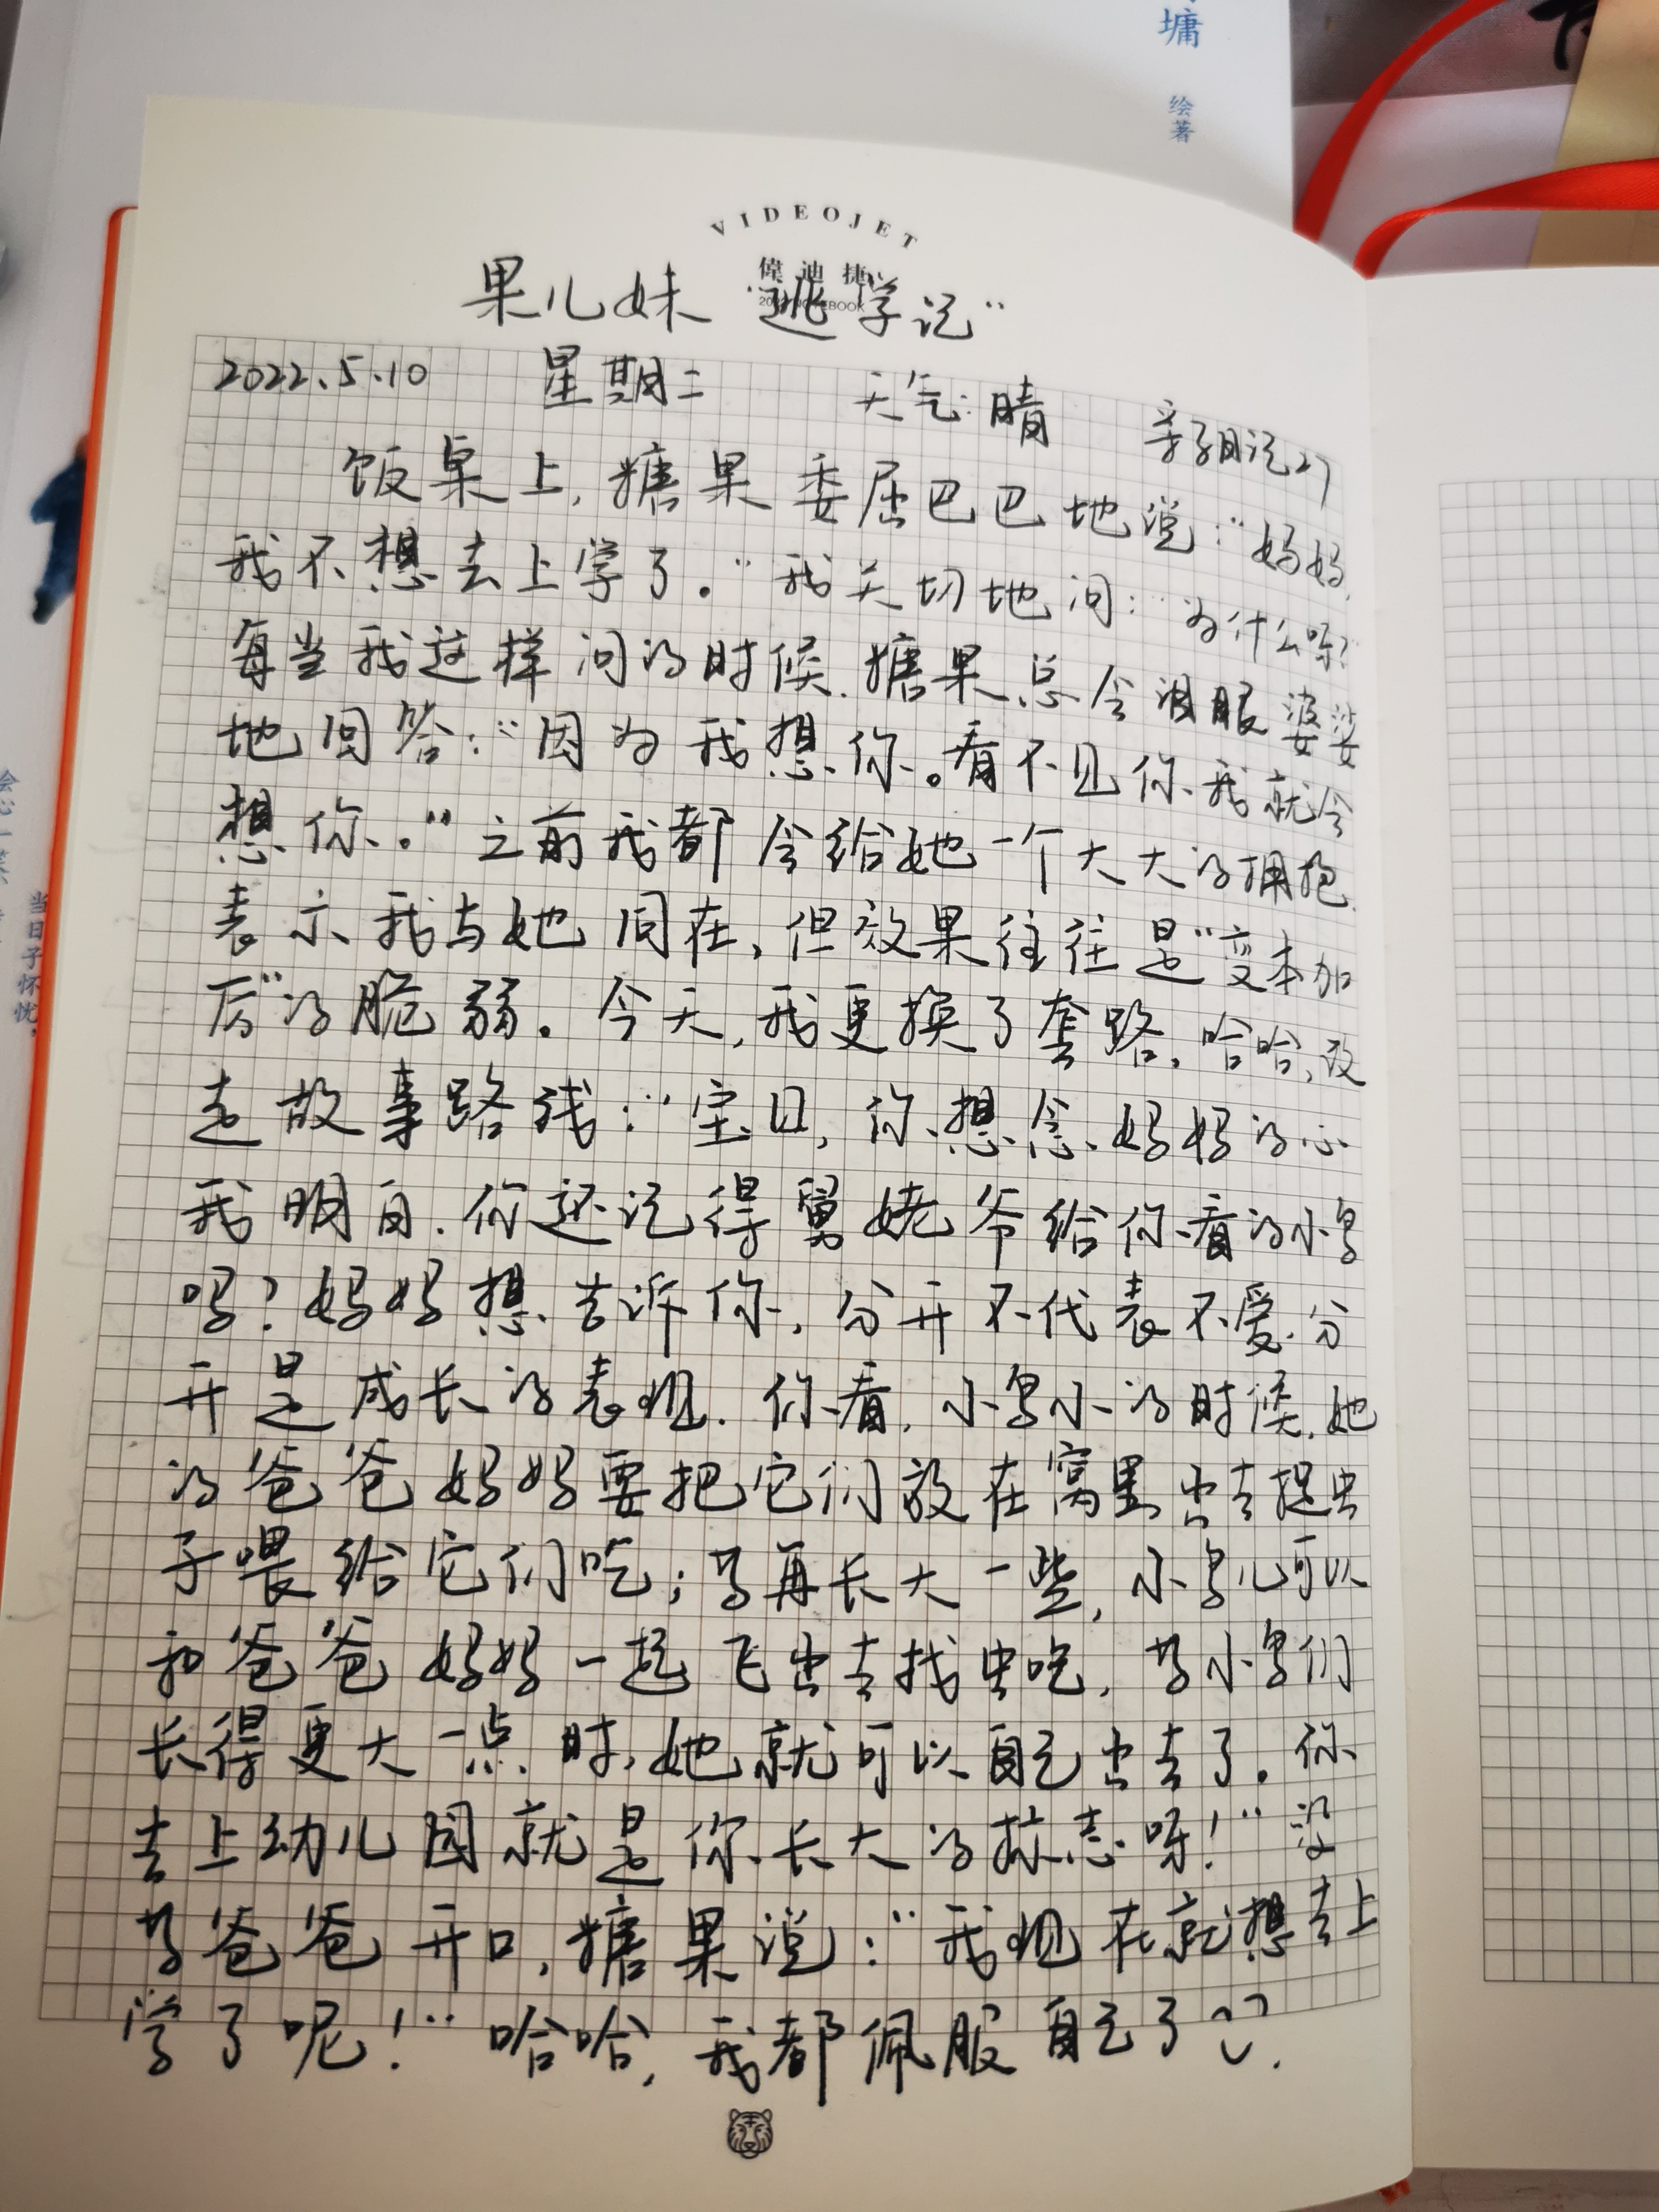 墉
绘著
VIDEOJET
偉迪捷
果儿妹 “逃学记”
2022.5.10 星期二 天气:晴 亲子日记27
饭桌上,糖果委屈巴巴地说:“妈妈,
我不想去上学了。”我关切地问:“为什么呀?”
每当我这样问的时候,糖果总会泪眼婆娑
地回答:“因为我想你。看不见你我就会
想你。”之前我都会给她一个大大的拥抱,
表示我与她同在,但效果往往是“变本加
厉”的脆弱。今天,我更换了套路,哈哈,改
走故事路线:“宝贝,你想念妈妈的心
我明白.你还记得舅姥爷给你看的小鸟
吗?妈妈想告诉你,分开不代表不爱.分
开是成长的表现.你看,小鸟小的时候,她
的爸爸妈妈要把它们放在窝里,出去捉虫
子喂给它们吃;等再长大一些,小鸟儿可以
和爸爸妈妈一起飞出去找虫吃,等小鸟们
长得更大一点时,她就可以自己出去了。你
去上幼儿园就是你长大的标志呀!”没
等爸爸开口,糖果说:“我现在就想去上
学了呢!”哈哈,我都佩服自己了.
当日子怀忧,